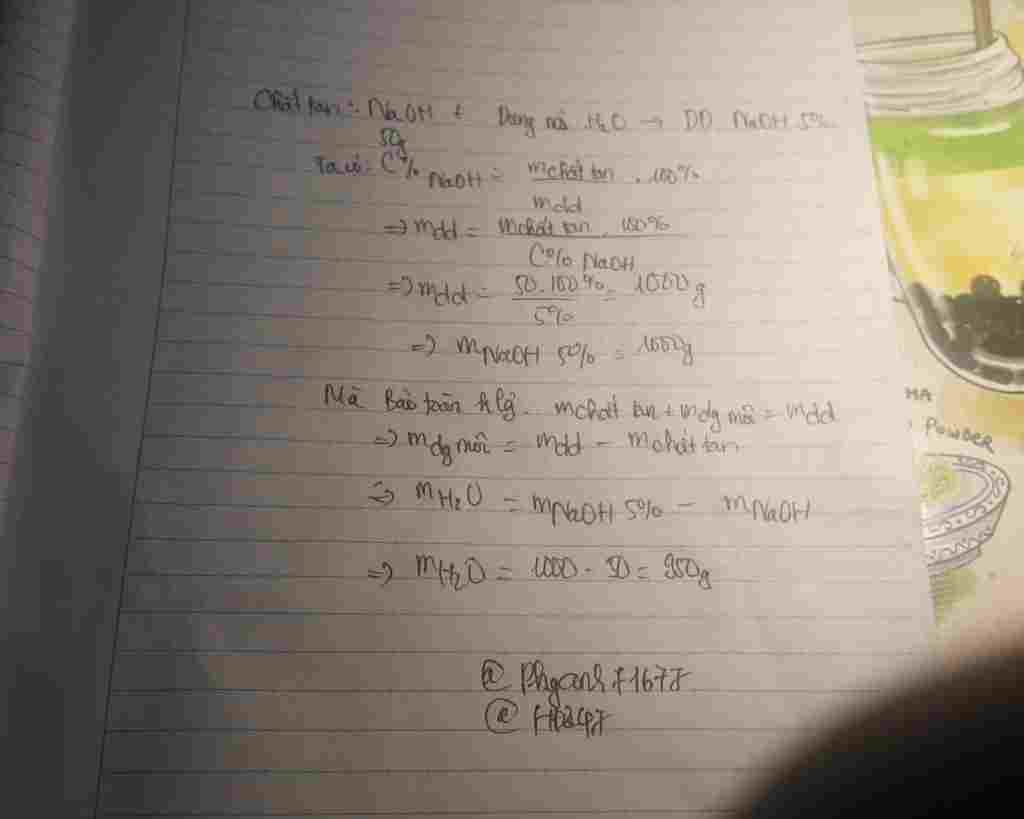 Chất tan: NaOH + Dung môi H₂O → DD NaOH 5%
50g
Ta có: C% NaOH = mchất tan . 100%
mdd
=> mdd = mchất tan . 100%
C% NaOH
=> mdd = 50.100% = 1000g
5%
=> mNaOH 5% = 1000g
Mà Bảo toàn klg: mchất tan + mdg môi = mdd
=> mdg môi = mdd - mchất tan
=> mH₂O = mNaOH 5% - mNaOH
=> mH₂O = 1000 - 50 = 950g
MA
POWDER